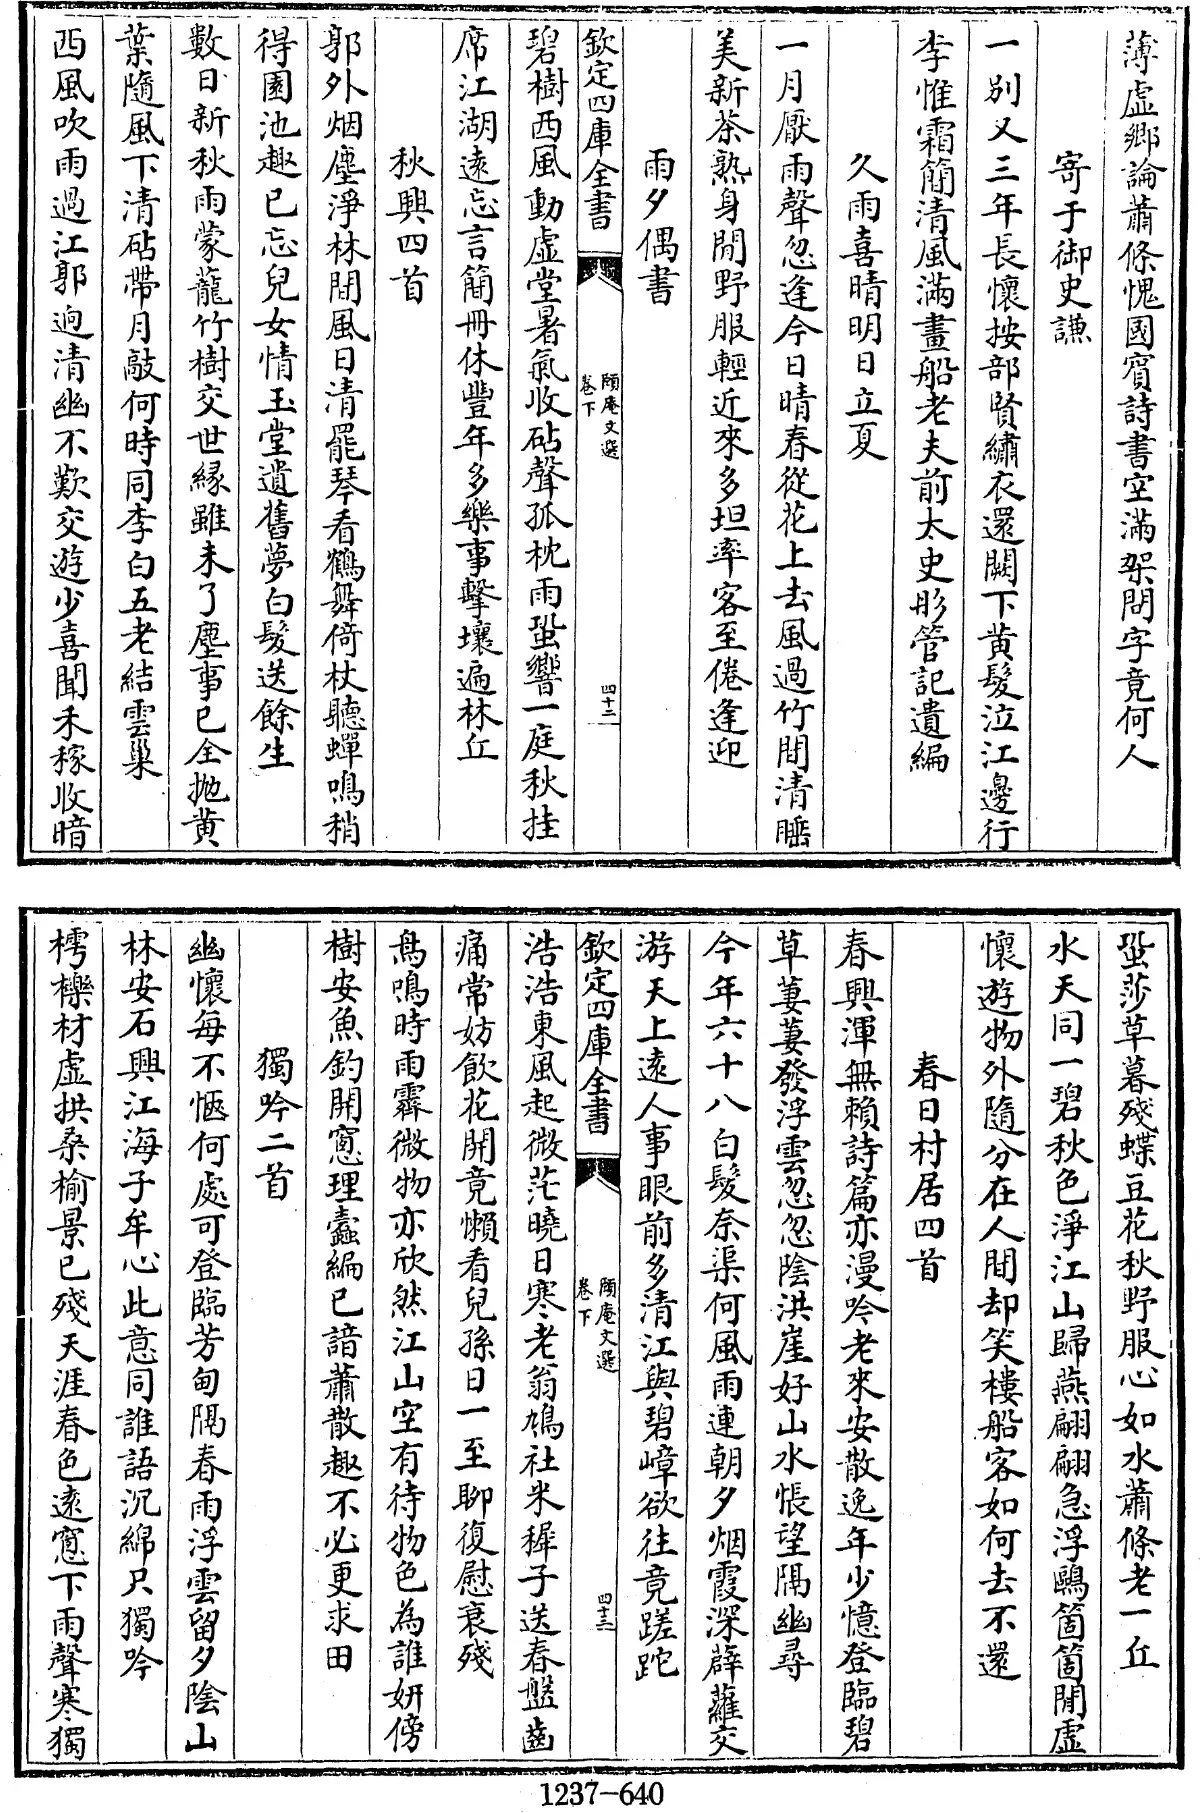 薄虛鄉論蕭條愧國賓詩書空滿架問字竟何人
寄于御史謙
一別又三年長懷按部賢繡衣還闕下黄髮泣江邊行
李惟霜簡清風滿畫船老夫前太史彤管記遺編
久雨喜晴明日立夏
一月厭雨聲忽逢今日晴春從花上去風過竹間清睡
美新茶熟身閒野服輕近來多坦率客至倦逢迎
雨夕偶書
欽定四庫全書
頤庵文選
卷下
四十二
碧樹西風動虛堂暑氣收砧聲孤枕雨蛩響一庭秋挂
席江湖遠忘言簡冊休豐年多樂事擊壤遍林丘
秋興四首
郭外烟塵淨林間風日清罷琴看鶴舞倚杖聽蟬鳴稍
得園池趣已忘兒女情玉堂遺舊夢白髮送餘生
數日新秋雨蒙蘢竹樹交世緣雖未了塵事已全抛黄
葉隨風下清砧帶月敲何時同李白五老結雲巢
西風吹雨過江郭逈清幽不歎交遊少喜聞禾稼收暗
蛩莎草暮殘蝶豆花秋野服心如水蕭條老一丘
水天同一碧秋色淨江山歸燕翩翩急浮鷗箇箇閒虛
懷遊物外隨分在人間却笑樓船客如何去不還
春日村居四首
春興渾無賴詩篇亦漫吟老來安散逸年少憶登臨碧
草萋萋發浮雲忽忽陰洪崖好山水悵望隔幽尋
今年六十八白髮奈渠何風雨連朝夕烟霞深薜蘿交
游天上遠人事眼前多清江與碧嶂欲往竟蹉跎
欽定四庫全書
頤庵文選
卷下
四十三
浩浩東風起微茫曉日寒老翁鳩社米穉子送春盤齒
痛常妨飲花開竟懶看兒孫日一至聊復慰衰殘
鳥鳴時雨霽微物亦欣然江山空有待物色為誰妍傍
樹安魚釣開窻理蠹編已諳蕭散趣不必更求田
獨吟二首
幽懷每不愜何處可登臨芳甸隔春雨浮雲留夕陰山
林安石興江海子牟心此意同誰語沉綿只獨吟
樗櫟材虛拱桑榆景已殘天涯春色遠窻下雨聲寒獨
1237-640